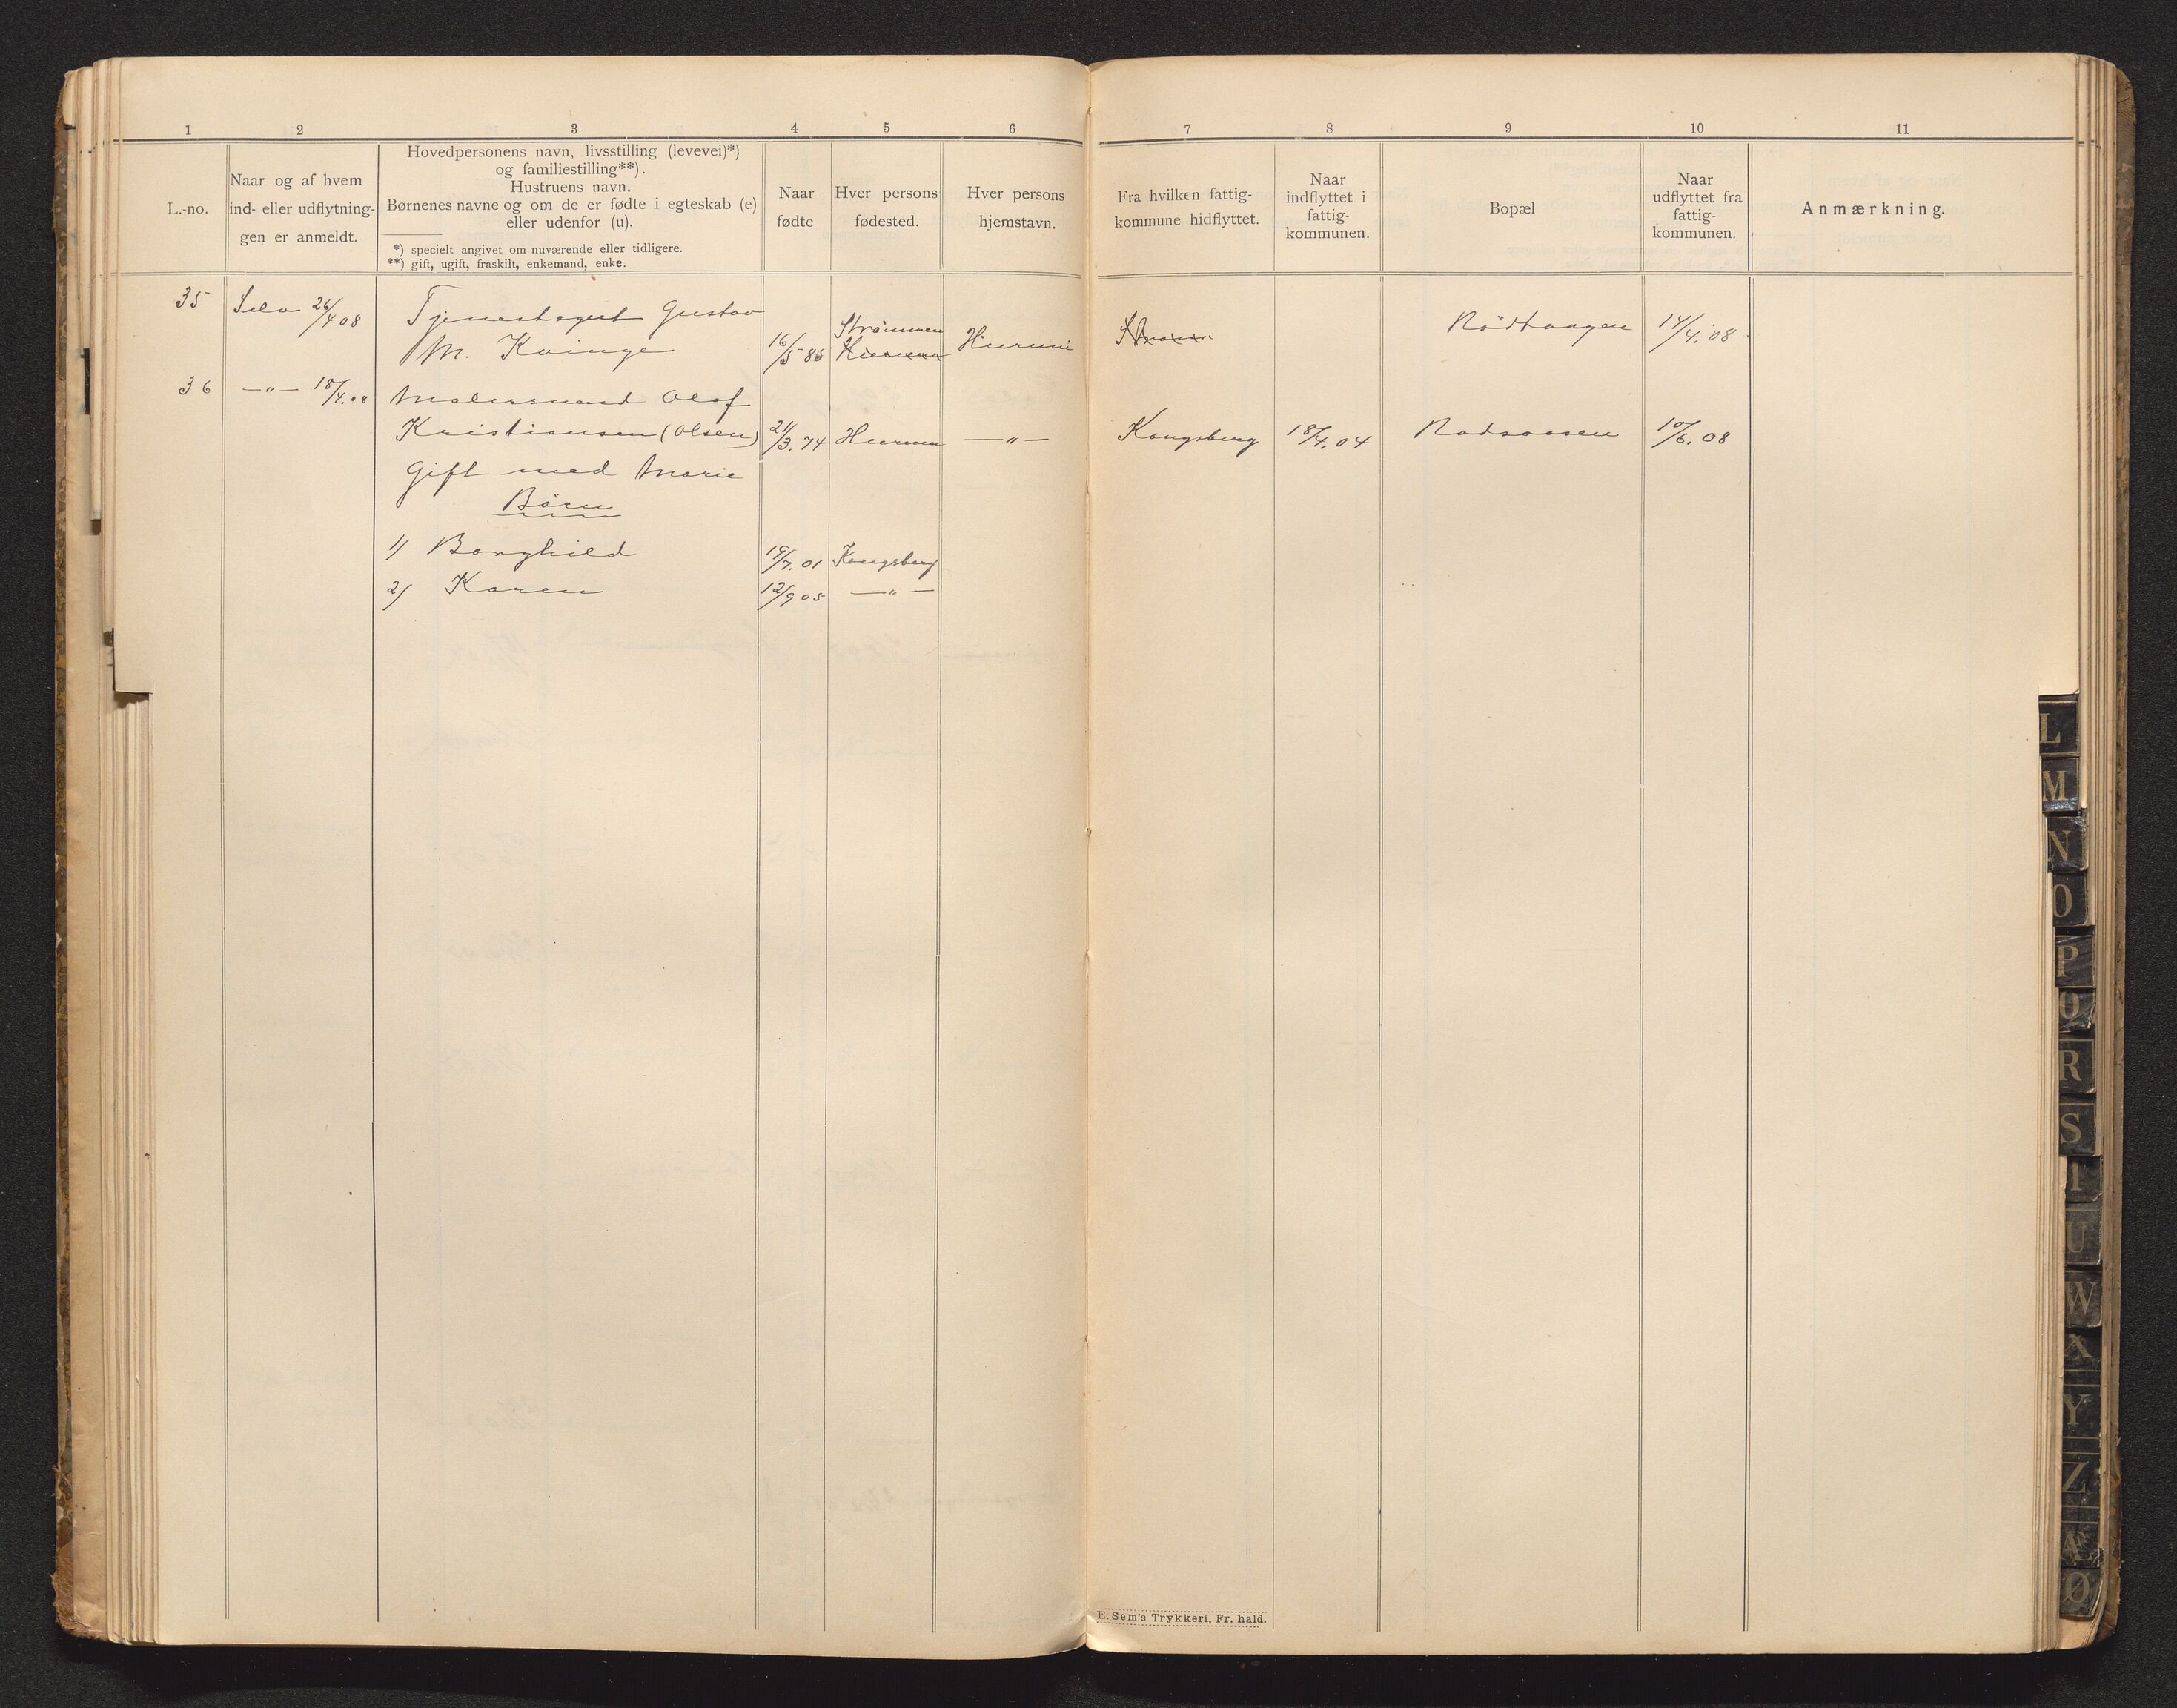 1 2 3 4 5 6 7 8 9 10 11
L.-no.
Naar og af hvem
ind- eller udflytnin-
gen er anmeldt.
Hovedpersonens navn, livsstilling (levevei)*)
og familiestilling**).
Hustruens navn.
Børnenes navne og om de er fødte i egteskab (e)
eller udenfor (u).
*) specielt angivet om nuværende eller tidligere.
**) gift, ugift, fraskilt, enkemand, enke.
Naar
fødte
Hver persons
fødested.
Hver persons
hjemstavn.
Fra hvilken fattig-
kommune hidflyttet.
Naar
indflyttet i
fattig-
kommunen.
Bopæl
Naar
udflyttet fra
fattig-
kommunen.
Anmærkning.
35 Selv 26/4 08 Tjenestegut Gustav Strømmen Rødtangen 14/4.08
M. Kvinge 16/5 85 Hurum Hurum
36 —"— 18/4.08 Malersvend Olaf
Kristiansen (Olsen) 21/3.74 Hurum —"— Kongsberg 18/4.04 Rødsaasen 10/6.08
Gift med Marie
Børn
1) Borghild 19/7.01 Kongsberg
2) Karen 12/9 05 —"—
E. Sem's Trykkeri, Fr. hald.
L
M
N
O
P
Q
R
S
T
U
W
X
Y
Z
Æ
Ø